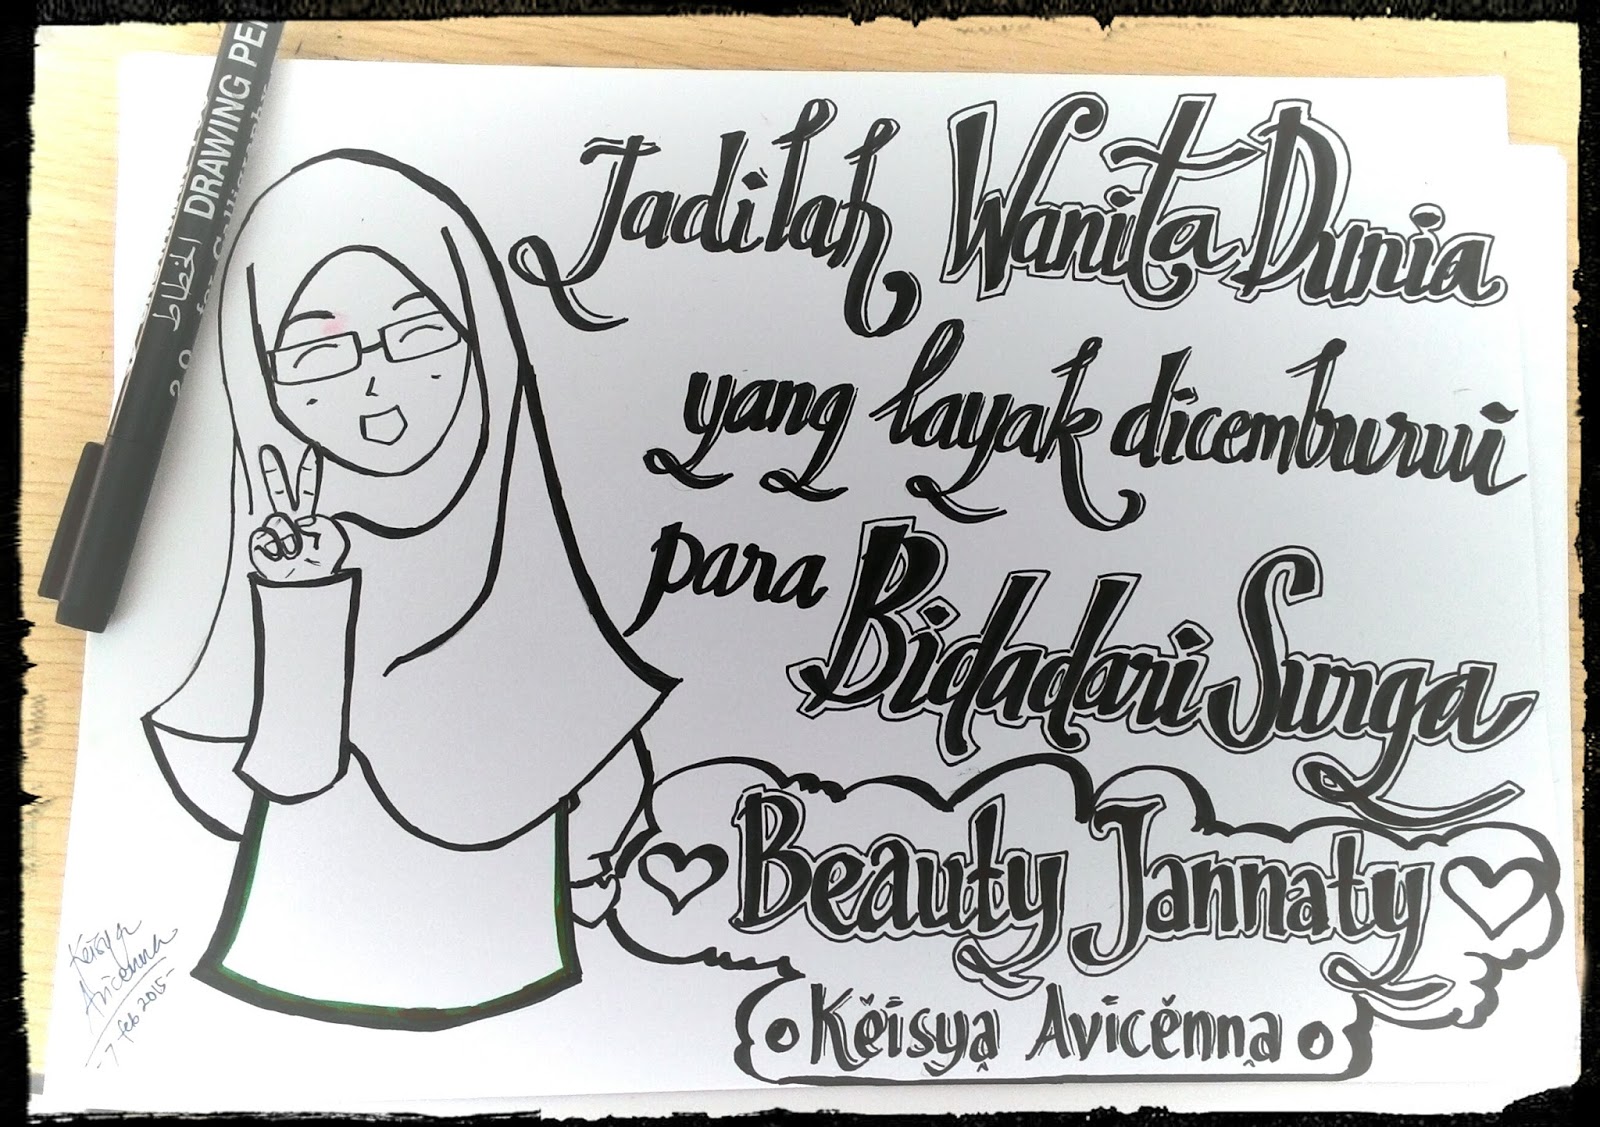 Jadilah Wanita Dunia
yang layak dicemburui
para Bidadari Surga
Beauty Jannaty
Keisya Avicenna
Keisya
Avicenna
-7 feb 2015-
DRAWING PEN
for Calligraphy
الخطاط
2.0